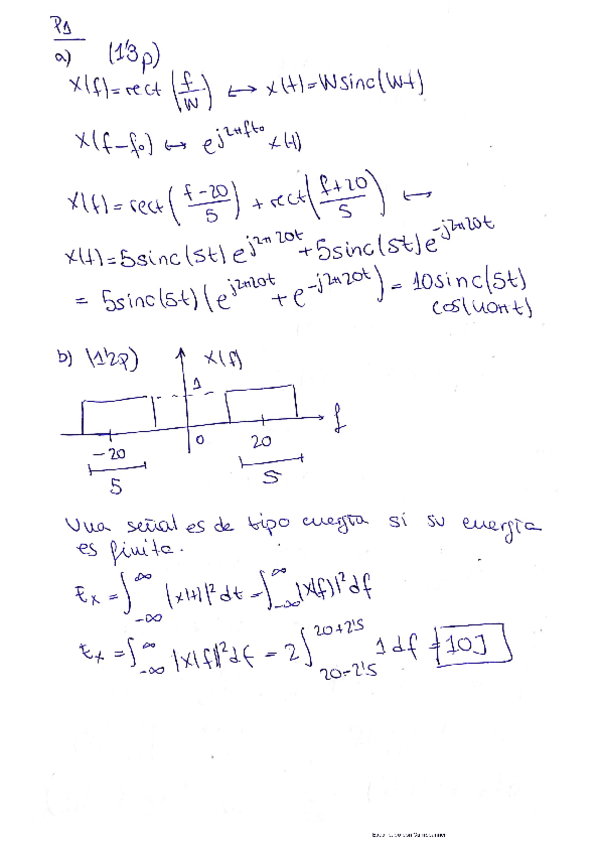 P1
a) (1'3p)
X(f)=rect(f/W) ↔ x(t)=Wsinc(Wt)
X(f-f₀) ↔ e^{j2πft₀} x(t)
X(f)=rect((f-20)/5) + rect((f+20)/5) ↔
x(t)=5sinc(5t)e^{j2π20t} + 5sinc(5t)e^{-j2π20t}
= 5sinc(5t)(e^{j2π20t} + e^{-j2π20t}) = 10sinc(5t)
cos(40πt)
b) (1'2p) X(f)
1
f
-20 0 20
5 5
Una señal es de tipo energía si su energía
es finita.
Ex = ∫_{-∞}^{∞} |x(t)|² dt = ∫_{-∞}^{∞} |X(f)|² df
Ex = ∫_{-∞}^{∞} |X(f)|² df = 2∫_{20-2'5}^{20+2'5} 1 df = 10J